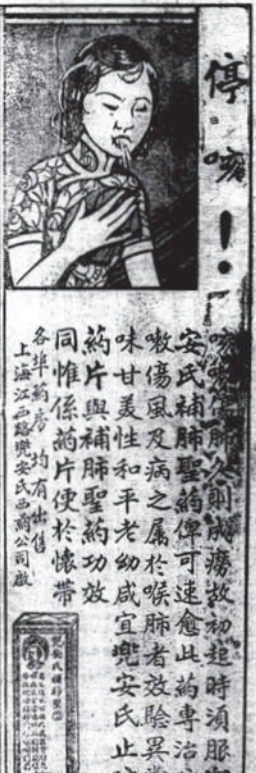 停咳！
咳嗽傷肺久則成癆故初起時須服
安氏補肺聖葯俾可速愈此葯專治
嗽傷風及病之属於喉肺者效驗異
味甘美性和平老幼咸宜兜安氏止
葯片與補肺聖葯功效
同惟係葯片便於懷帶
各埠葯房均有出售
上海江西路兜安氏西葯公司啟